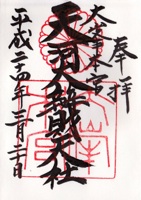 奉拝
大峯本宮
天河大辨財天社
平成二十四年三月二十日